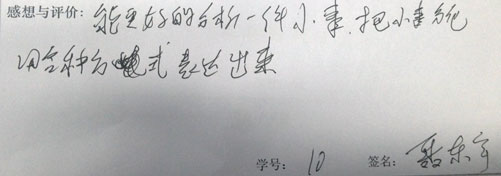 感想与评价：能更好的分析一件小事，把小事
用各种方式表达出来
学号：10 签名：东宇